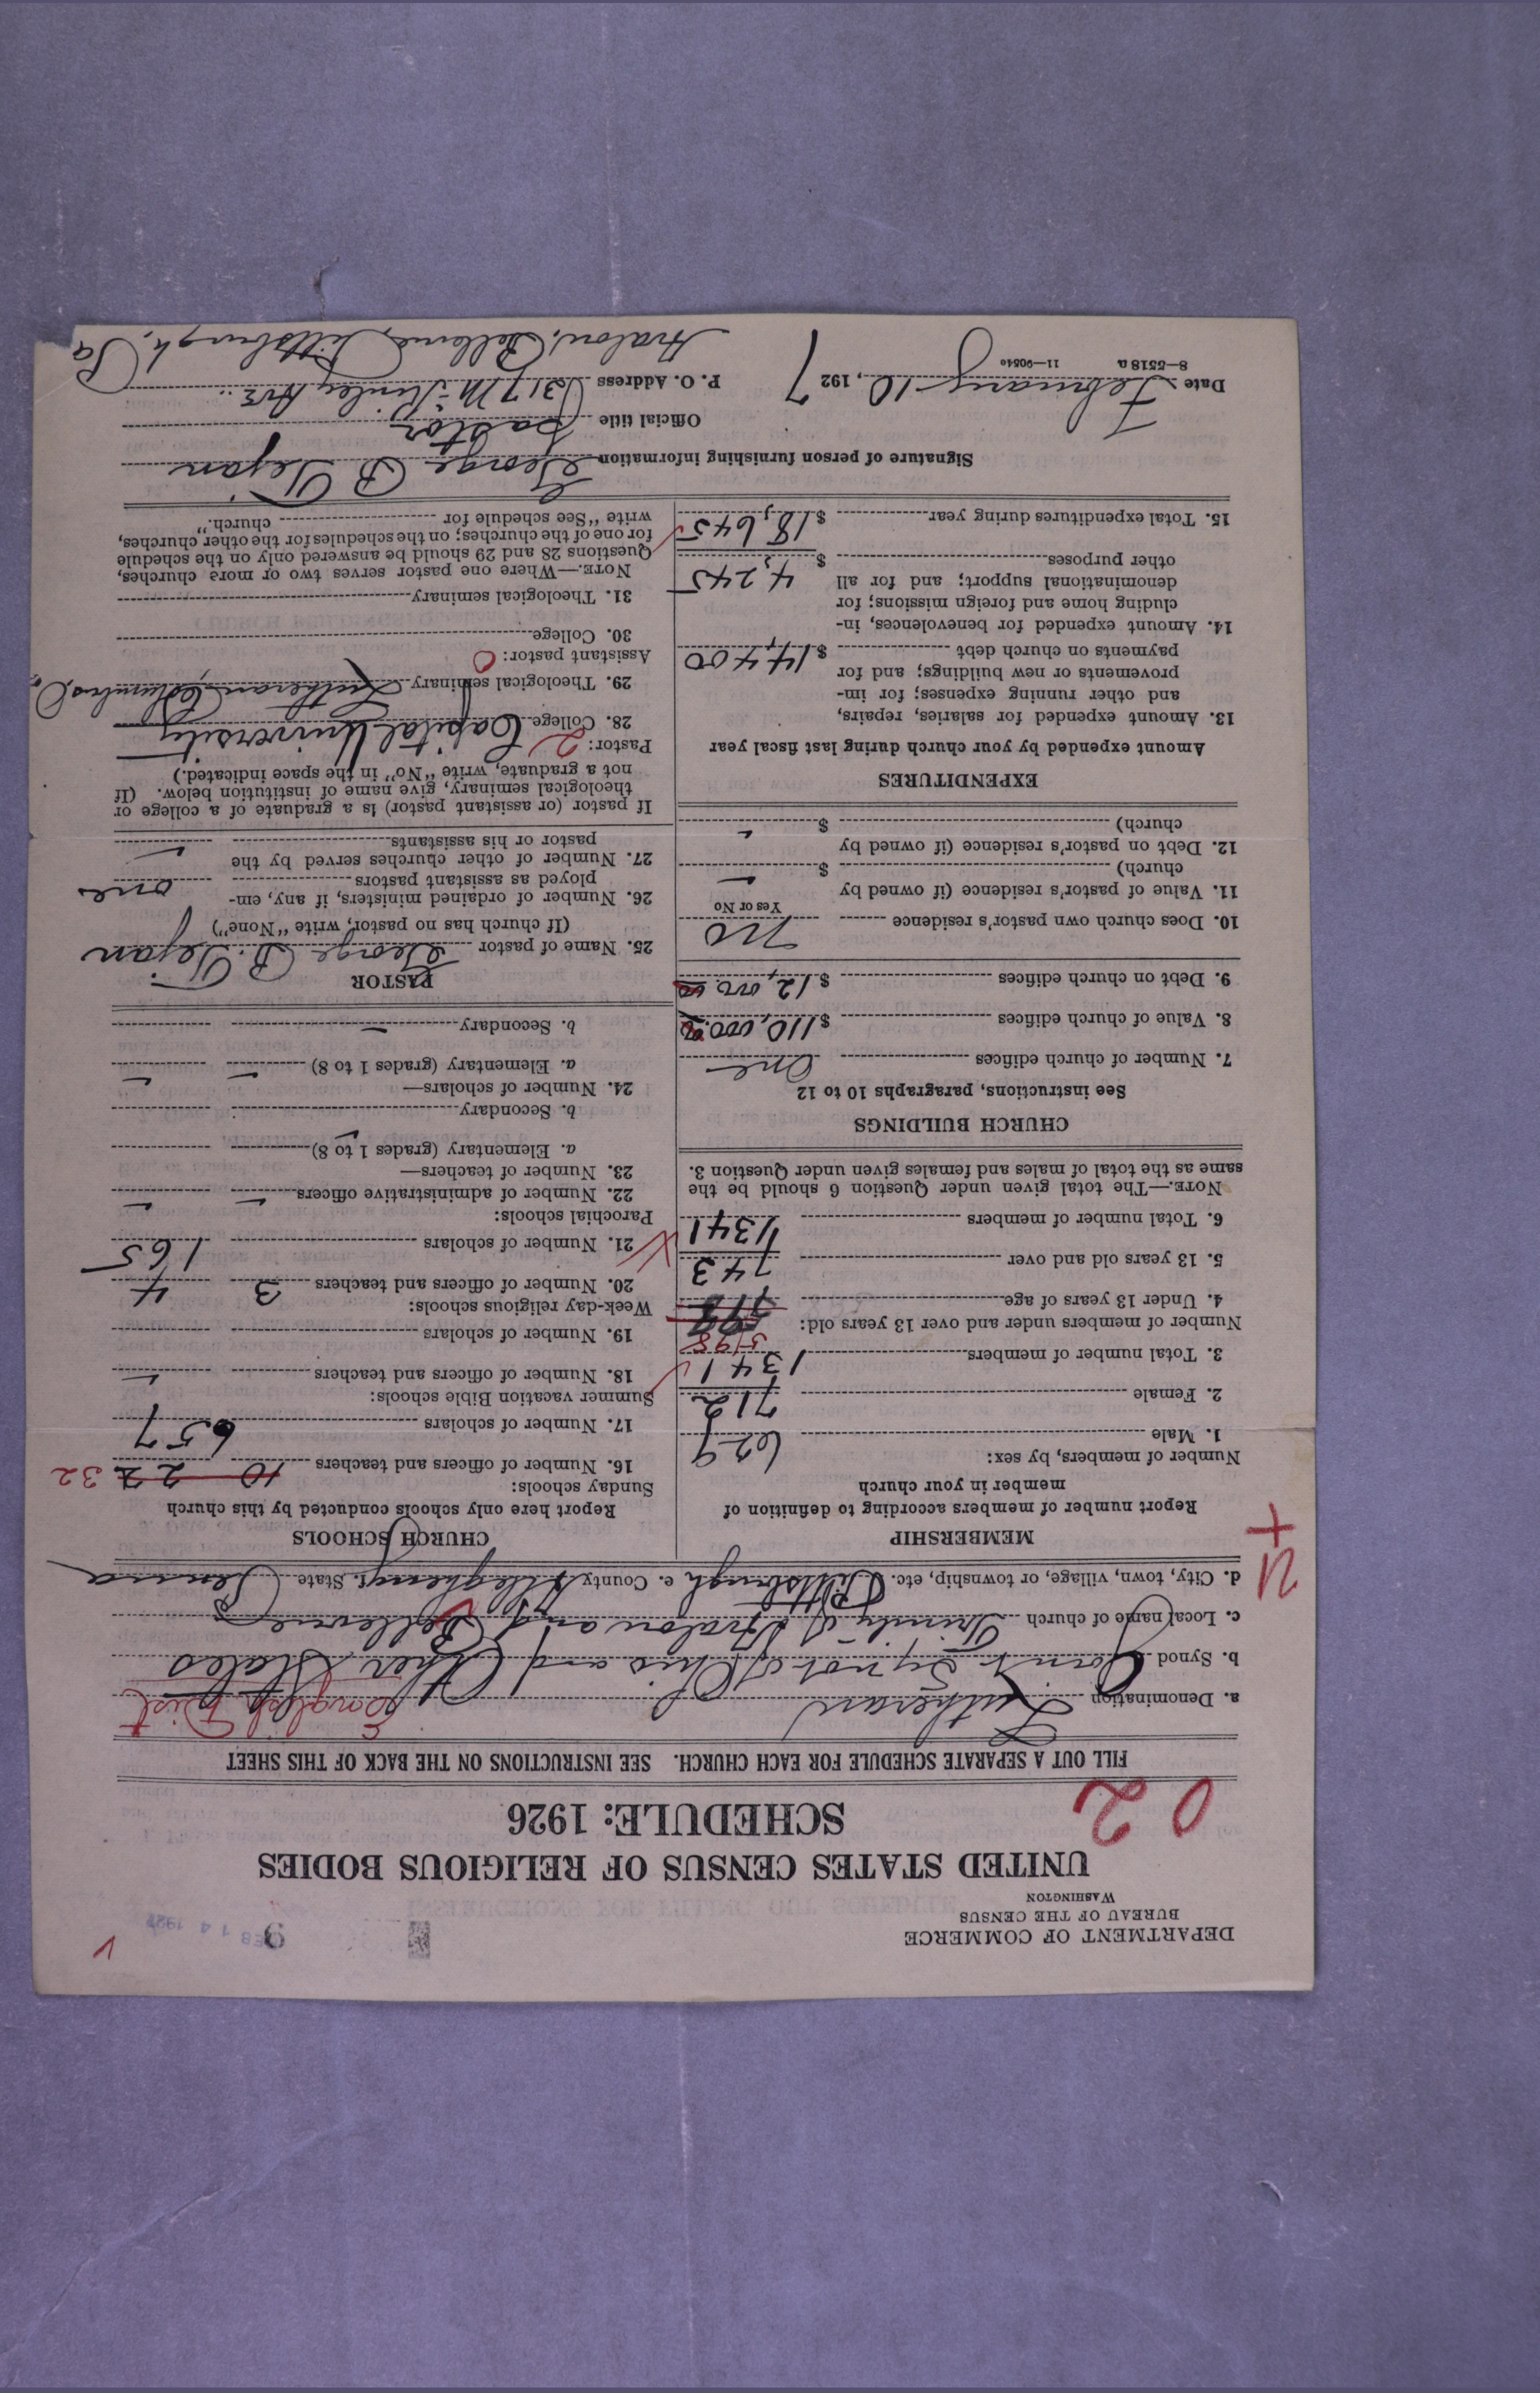 DEPARTMENT OF COMMERCE
BUREAU OF THE CENSUS
WASHINGTON
9
FEB 14 1927
UNITED STATES CENSUS OF RELIGIOUS BODIES
SCHEDULE: 1926
0 2
FILL OUT A SEPARATE SCHEDULE FOR EACH CHURCH. SEE INSTRUCTIONS ON THE BACK OF THIS SHEET
a. Denomination Lutheran English Dist
b. Synod Joint Synod of Ohio and Other States
c. Local name of church Trinity of Avalon and Bellevue
d. City, town, village, or township, etc. Pittsburgh e. County Allegheny f. State Penna
MEMBERSHIP
Report number of members according to definition of
member in your church
Number of members, by sex:
1. Male 629
2. Female 712
3. Total number of members 1341
Number of members under and over 13 years old: 598
4. Under 13 years of age
5. 13 years old and over 743
6. Total number of members 1341
NOTE.—The total given under Question 6 should be the
same as the total of males and females given under Question 3.
CHURCH BUILDINGS
See instructions, paragraphs 10 to 12
7. Number of church edifices One
8. Value of church edifices $ 110,000.00
9. Debt on church edifices $ 12,000.00
10. Does church own pastor's residence No
Yes or No
11. Value of pastor's residence (if owned by
church) $ –
12. Debt on pastor's residence (if owned by
church) $ –
EXPENDITURES
Amount expended by your church during last fiscal year
13. Amount expended for salaries, repairs,
and other running expenses; for im-
provements or new buildings; and for
payments on church debt $ 14,400
14. Amount expended for benevolences, in-
cluding home and foreign missions; for
denominational support; and for all
other purposes $ 4,245
15. Total expenditures during year $ 18,645
CHURCH SCHOOLS
Report here only schools conducted by this church
Sunday schools:
16. Number of officers and teachers 10 22 32
17. Number of scholars 657
Summer vacation Bible schools:
18. Number of officers and teachers –
19. Number of scholars
Week-day religious schools:
20. Number of officers and teachers 3 4
21. Number of scholars 165
Parochial schools:
22. Number of administrative officers – –
23. Number of teachers—
a. Elementary (grades 1 to 8) –
b. Secondary
24. Number of scholars—
a. Elementary (grades 1 to 8) – –
b. Secondary –
PASTOR
25. Name of pastor George D. Tejan
(If church has no pastor, write "None")
26. Number of ordained ministers, if any, em-
ployed as assistant pastors one
27. Number of other churches served by the
pastor or his assistants –
If pastor (or assistant pastor) is a graduate of a college or
theological seminary, give name of institution below. (If
not a graduate, write "No" in the space indicated.)
Pastor: 2
28. College Capital University
29. Theological seminary Lutheran, Columbus, O.
Assistant pastor: 0
30. College
31. Theological seminary
NOTE.—Where one pastor serves two or more churches,
Questions 28 and 29 should be answered only on the schedule
for one of the churches; on the schedules for the other churches,
write "See schedule for church."
Signature of person furnishing information George D Tejan
Official title Pastor
Date February 10, 1927
P. O. Address 317 McKinley Ave.
Avalon, Bellevue, Pittsburgh, Pa
8—5518 a 11—90840